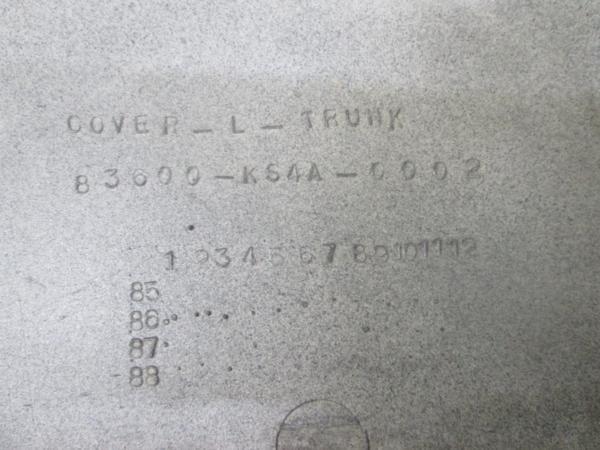 COVER-L-TRUNK
83600-KS4A-0002
1 2 3 4 5 6 7 8 9 10 11 12
85
86
87
88